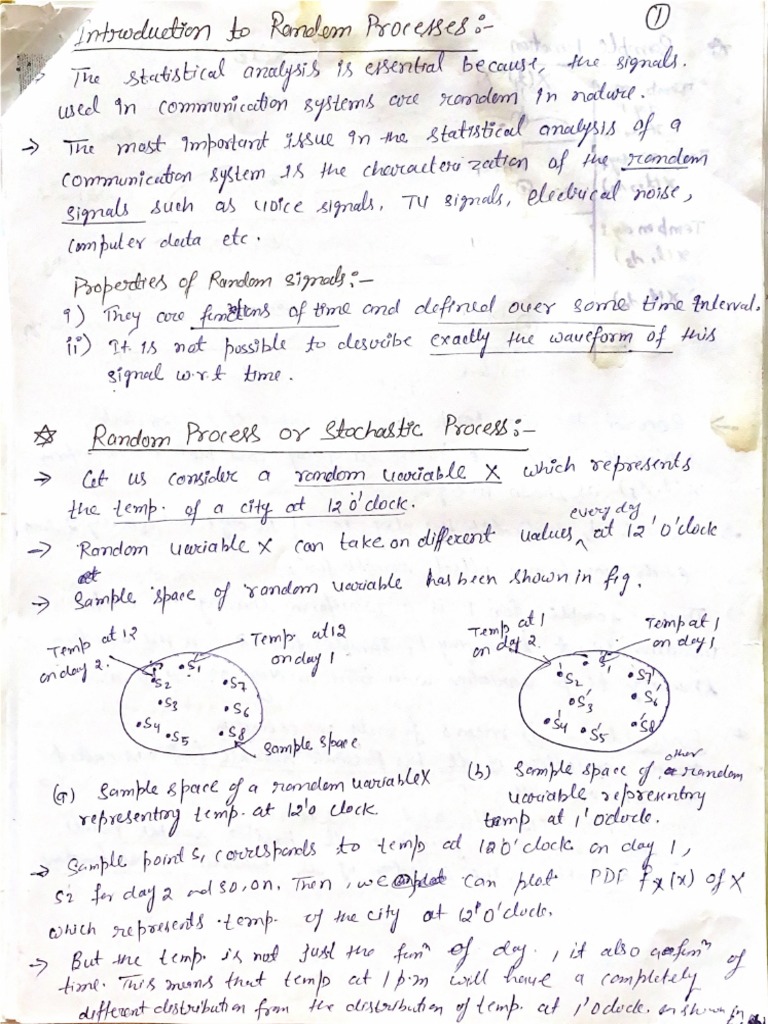 1
Introduction to Random Processes:-
The statistical analysis is essential because, the signals.
used in communication systems are random in nature.
→ The most important issue in the statistical analysis of a
communication system is the characterization of the random
signals such as voice signals, TV signals, electrical noise,
computer data etc.
Properties of Random signals:-
i) They are functions of time and defined over some time interval.
ii) It is not possible to describe exactly the waveform of this
signal w.r.t time.
☆ Random Process or Stochastic Process:-
→ Let us consider a random variable X which represents
the temp. of a city at 12 o'clock.
→ Random variable X can take on different values every day at 12' O'clock
→ Sample space of random variable has been shown in fig.
Temp at 12 on day 2.
Temp. at 12 on day 1.
S1
S2
S3
S4
S5
S6
S7
S8
Sample space
Temp at 1 on day 2.
Temp at 1 on day 1
S1'
S2'
S3'
S4'
S5'
S6'
S7'
S8'
(a) Sample space of a random variable X
representing temp. at 12'o clock.
(b) Sample space of other random
variable representing
temp at 1' O'clock.
→ Sample point S1 corresponds to temp at 12 O'clock on day 1,
S2 for day 2 and so, on. Then, we can plot PDF fx(x) of X
which represents temp. of the city at 12' O'clock.
→ But the temp. is not just the funⁿ of day., it also a funⁿ of
time. This means that temp at 1 p.m will have a completely
different distribution from the distribution of temp. at 1' O'clock. as shown in